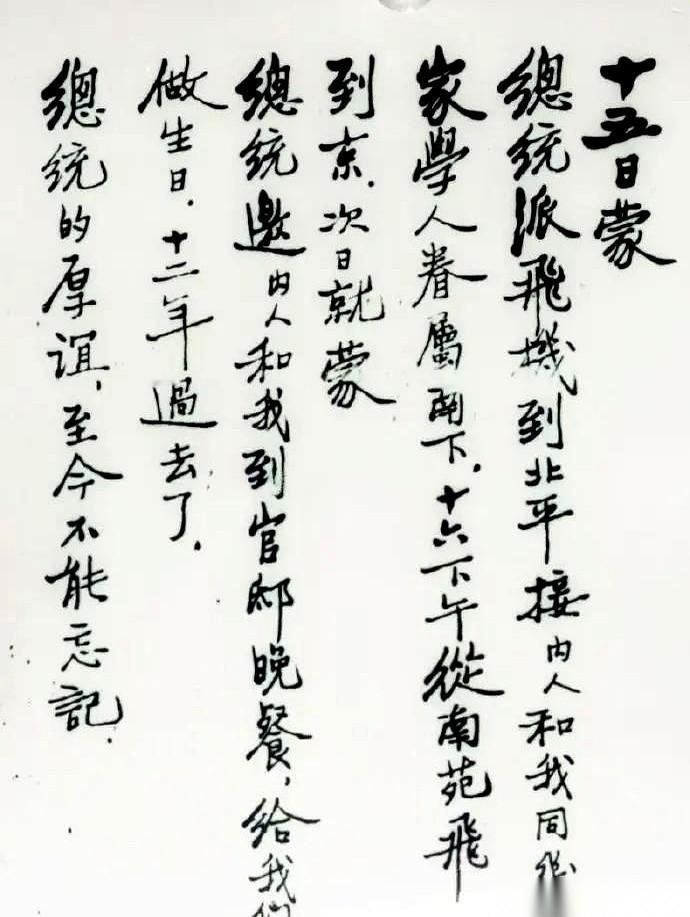 十五日蒙
總統派飛機到北平接內人和我同幾
家學人眷屬南下.十六下午從南苑飛
到京.次日就蒙
總統邀內人和我到官邸晚餐,給我們
做生日.十二年過去了.
總統的厚誼,至今不能忘記.